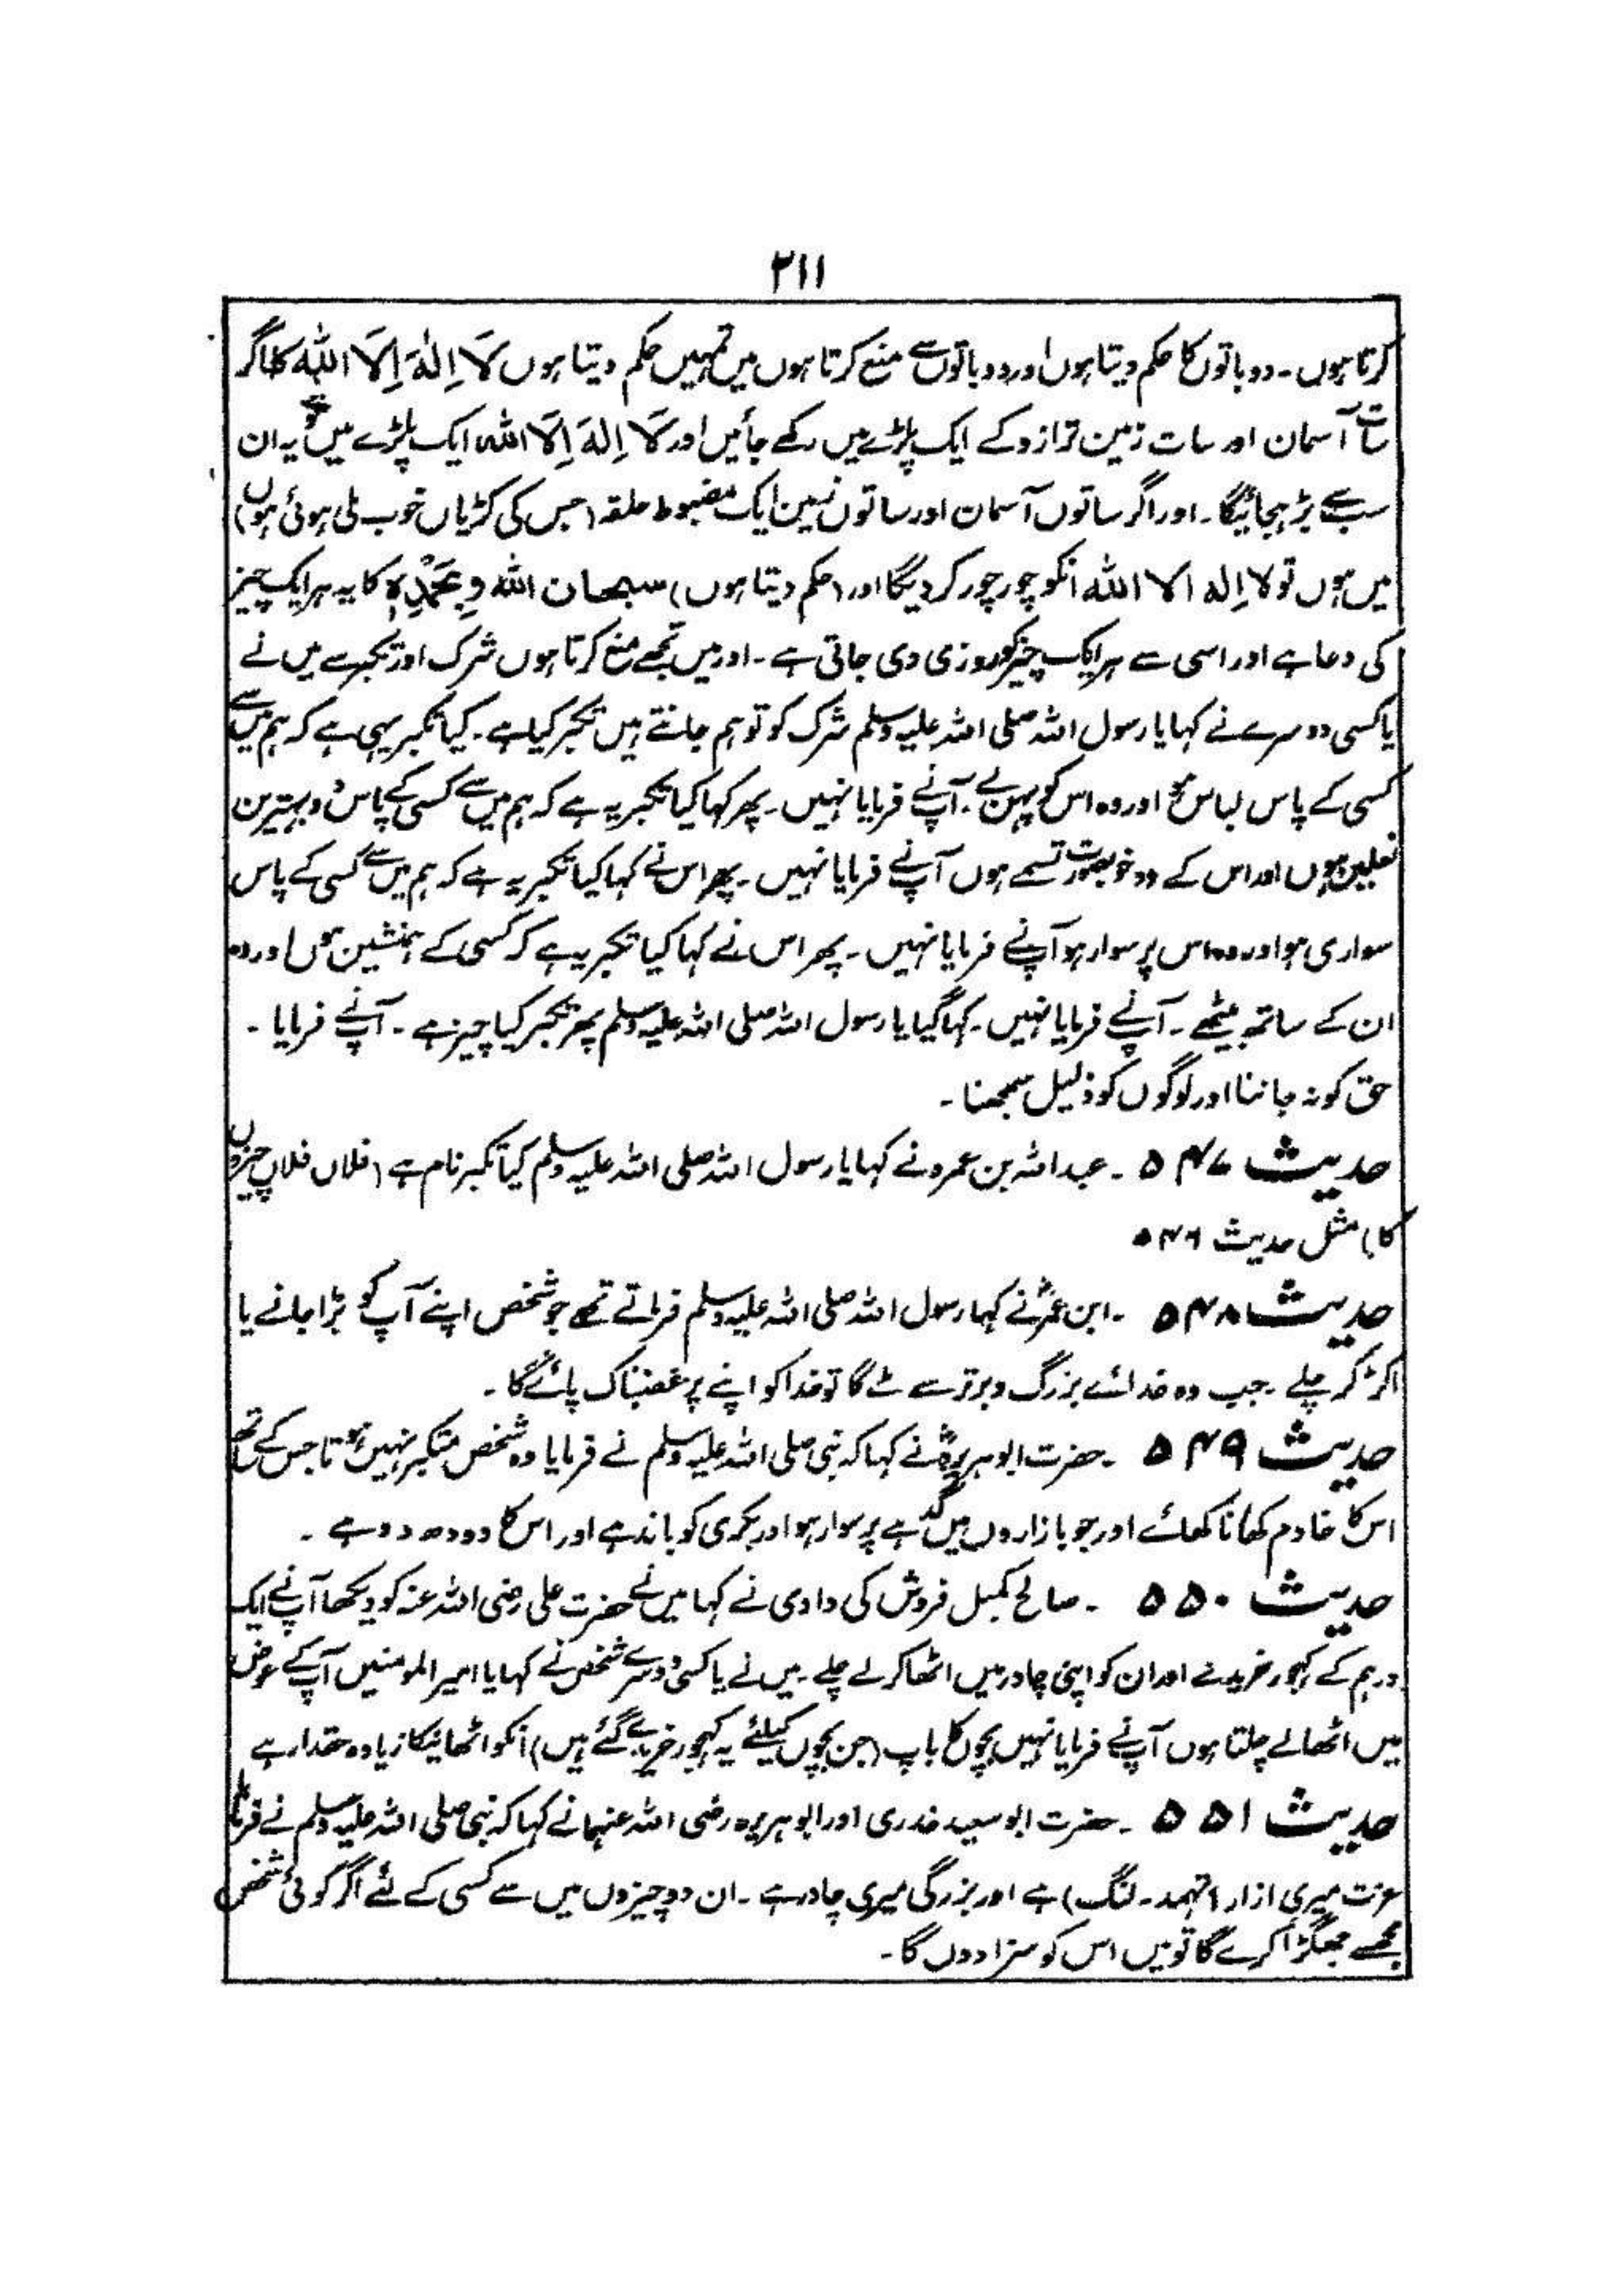 ۲۱۱
کرتا ہوں۔ دو باتوں کا حکم دیتا ہوں اور دو باتوں سے منع کرتا ہوں میں تمہیں حکم دیتا ہوں لَا اِلٰہَ اِلَّا اللہ کا اگر
سات آسمان اور سات زمین ترازو کے ایک پلڑے میں رکھے جائیں اور لَا اِلٰہَ اِلَّا اللہ ایک پلڑے میں ہو تو یہ ان
سب سے بڑھ جائیگا۔ اور اگر ساتوں آسمان اور ساتوں زمین ایک مضبوط حلقہ (جس کی کڑیاں خوب ملی ہوئی ہوں)
میں ہوں تو لا اِلٰہ الا اللہ انکو چور چور کر دیگا اور (حکم دیتا ہوں) سبحان اللہ وَبِحَمْدِہٖ کا یہ ہر ایک چیز
کی دعا ہے اور اسی سے ہر ایک چیز کو روزی دی جاتی ہے۔ اور میں تجھے منع کرتا ہوں شرک اور تکبر سے میں نے
یا کسی دوسرے نے کہا یا رسول اللہ صلی اللہ علیہ وسلم شرک کو تو ہم جانتے ہیں تکبر کیا ہے۔ کیا تکبر یہی ہے کہ ہم میں سے
کسی کے پاس لباس ہو اور وہ اس کو پہن لے۔ آپنے فرمایا نہیں۔ پھر کہا کیا تکبر یہ ہے کہ ہم میں سے کسی کے پاس دو بہترین
نعلین ہوں اور اس کے دو خوبصورت تسمے ہوں آپنے فرمایا نہیں۔ پھر اس نے کہا کیا تکبر یہ ہے کہ ہم میں سے کسی کے پاس
سواری ہو اور وہ اس پر سوار ہو آپنے فرمایا نہیں۔ پھر اس نے کہا کیا تکبر یہ ہے کہ کسی کے ہمنشین ہوں اور وہ
ان کے ساتھ بیٹھے۔ آپنے فرمایا نہیں۔ کہا گیا یا رسول اللہ صلی اللہ علیہ وسلم پھر تکبر کیا چیز ہے۔ آپنے فرمایا۔
حق کو نہ جاننا اور لوگوں کو ذلیل سمجھنا۔
حدیث ۵۴۷۔ عبداللہ بن عمرو نے کہا یا رسول اللہ صلی اللہ علیہ وسلم کیا تکبر نام ہے (فلاں فلاں چیزوں
کا) مثل حدیث ۵۴۶
حدیث ۵۴۸۔ ابن عمرؓ نے کہا رسول اللہ صلی اللہ علیہ وسلم فرماتے تھے جو شخص اپنے آپ کو بڑا جانے یا
اکڑ کر چلے۔ جب وہ خدائے بزرگ و برتر سے ملے گا تو خدا کو اپنے پر غضبناک پائے گا۔
حدیث ۵۴۹۔ حضرت ابوہریرہؓ نے کہا کہ نبی صلی اللہ علیہ وسلم نے فرمایا وہ شخص متکبر نہیں ہوتا جس کے ساتھ
اس کا خادم کھانا کھائے اور جو بازاروں میں گدہے پر سوار ہو اور بکری کو باندہے اور اس کا دودھ دوہے۔
حدیث ۵۵۰۔ صالح کمبل فروش کی دادی نے کہا میں نے حضرت علی رضی اللہ عنہ کو دیکھا آپنے ایک
درہم کے کہجور خریدے اور ان کو اپنی چادر میں اٹھا کر لے چلے۔ میں نے یا کسی دوسرے شخص نے کہا یا امیر المومنیں آپ کے عوض
میں اٹھا لے چلتا ہوں آپنے فرمایا نہیں بچوں کا باپ (جن بچوں کیلئے یہ کہجور خریدے گئے ہیں) انکو اٹھانیکا زیادہ حقدار ہے
حدیث ۵۵۱۔ حضرت ابو سعید خدری اور ابوہریرہ رضی اللہ عنہما نے کہا کہ نبی صلی اللہ علیہ وسلم نے فرمایا
عزت میری ازار (تہمد۔ لنگ) ہے اور بزرگی میری چادر ہے۔ ان دو چیزوں میں سے کسی کے لئے اگر کوئی شخص
مجھسے جھگڑا کرے گا تو میں اس کو سزا دوں گا۔